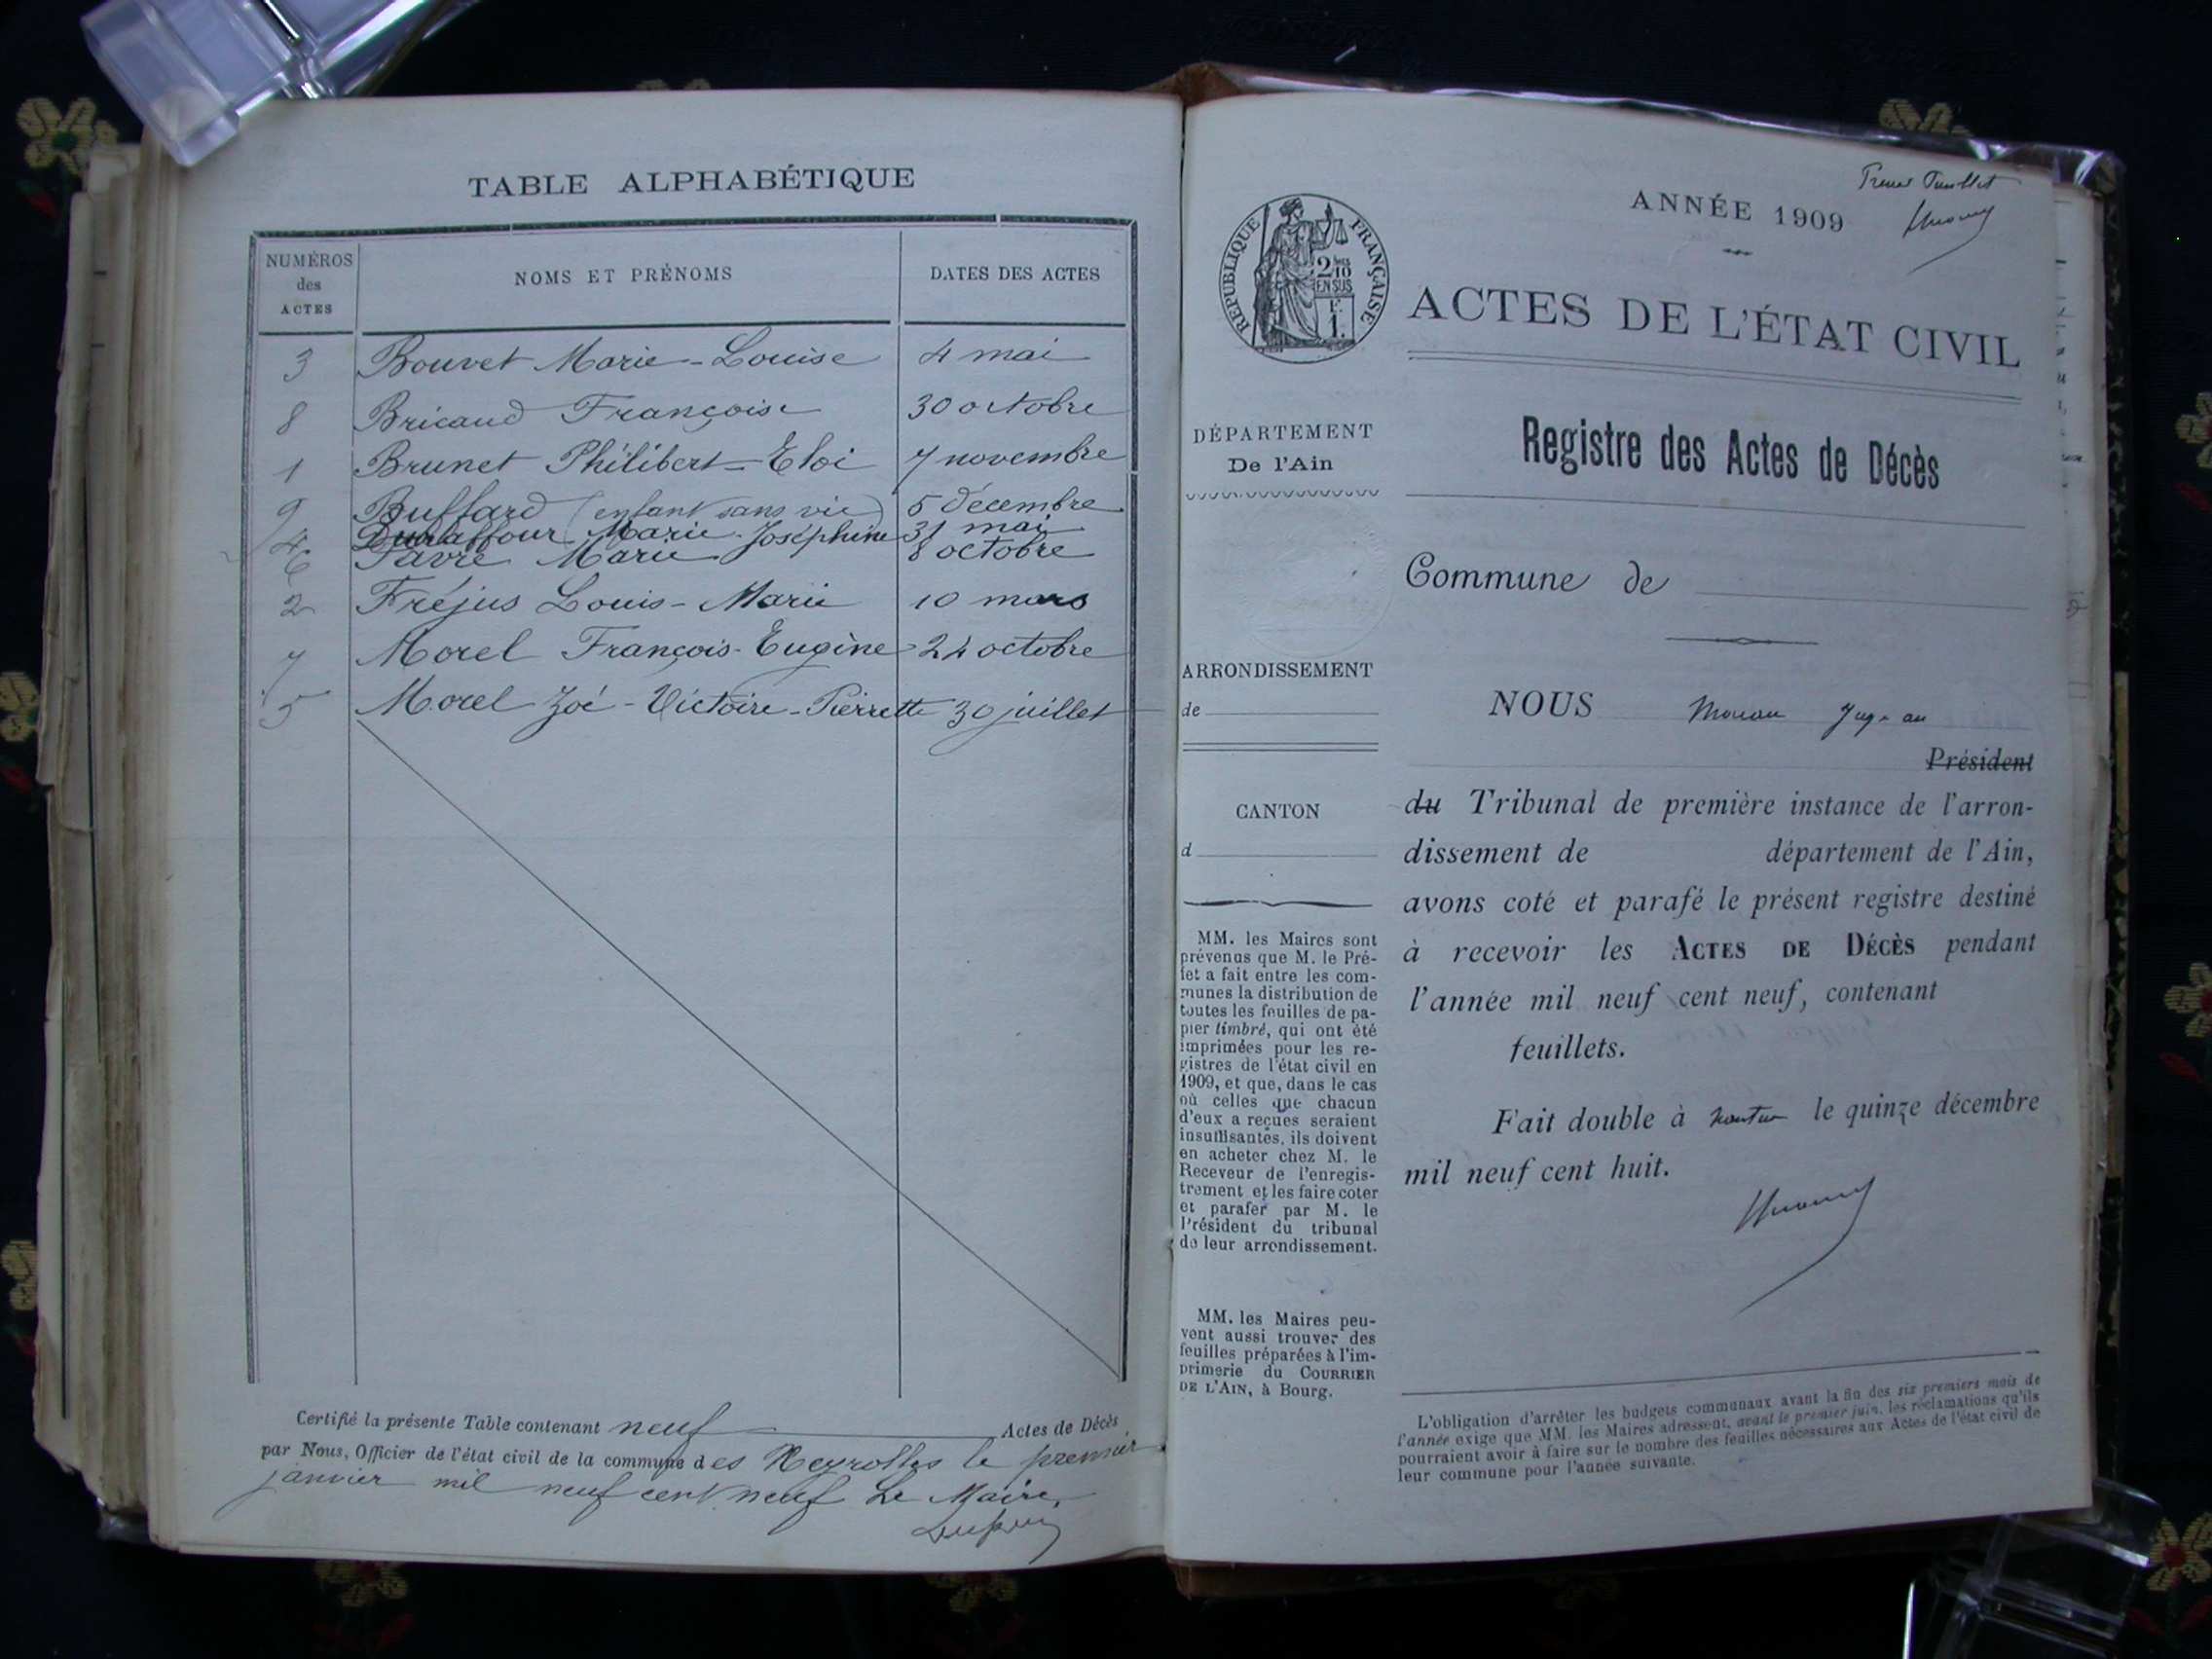 TABLE ALPHABÉTIQUE
NUMÉROS des ACTES | NOMS ET PRÉNOMS | DATES DES ACTES
3 Bouvet Marie-Louise 4 mai
8 Bricaud Françoise 30 octobre
1 Brunet Philibert-Eloi 7 novembre
9 Buffard (enfant sans vie) 5 décembre
4 Duraffour Marie-Joséphine 31 mai
6 Favre Marie 8 octobre
2 Fréjus Louis-Marie 10 mars
7 Morel François-Eugène 24 octobre
5 Morel Zoé-Victoire-Pierrette 30 juillet
Certifié la présente Table contenant neuf Actes de Décès
par Nous, Officier de l'état civil de la commune des Neyrolles le premier
janvier mil neuf cent neuf Le Maire,
ANNÉE 1909
RÉPUBLIQUE FRANÇAISE
2 10 EN SUS
1 F.
ACTES DE L'ÉTAT CIVIL
Registre des Actes de Décès
DÉPARTEMENT
De l'Ain
Commune de
ARRONDISSEMENT
de
CANTON
d
NOUS
Président
du Tribunal de première instance de l'arron-
dissement de département de l'Ain,
avons coté et parafé le présent registre destiné
à recevoir les ACTES DE DÉCÈS pendant
l'année mil neuf cent neuf, contenant
feuillets.
Fait double à Nantua le quinze décembre
mil neuf cent huit.
MM. les Maires sont
prévenus que M. le Pré-
fet a fait entre les com-
munes la distribution de
toutes les feuilles de pa-
pier timbré, qui ont été
imprimées pour les re-
gistres de l'état civil en
1909, et que, dans le cas
où celles que chacun
d'eux a reçues seraient
insuffisantes, ils doivent
en acheter chez M. le
Receveur de l'enregis-
trement et les faire coter
et parafer par M. le
Président du tribunal
de leur arrondissement.
MM. les Maires peu-
vent aussi trouver des
feuilles préparées à l'im-
primerie du COURRIER
DE L'AIN, à Bourg.
L'obligation d'arrêter les budgets communaux avant la fin des six premiers mois de
l'année exige que MM. les Maires adressent, avant le premier juin, les réclamations qu'ils
pourraient avoir à faire sur le nombre des feuilles nécessaires aux Actes de l'état civil de
leur commune pour l'année suivante.